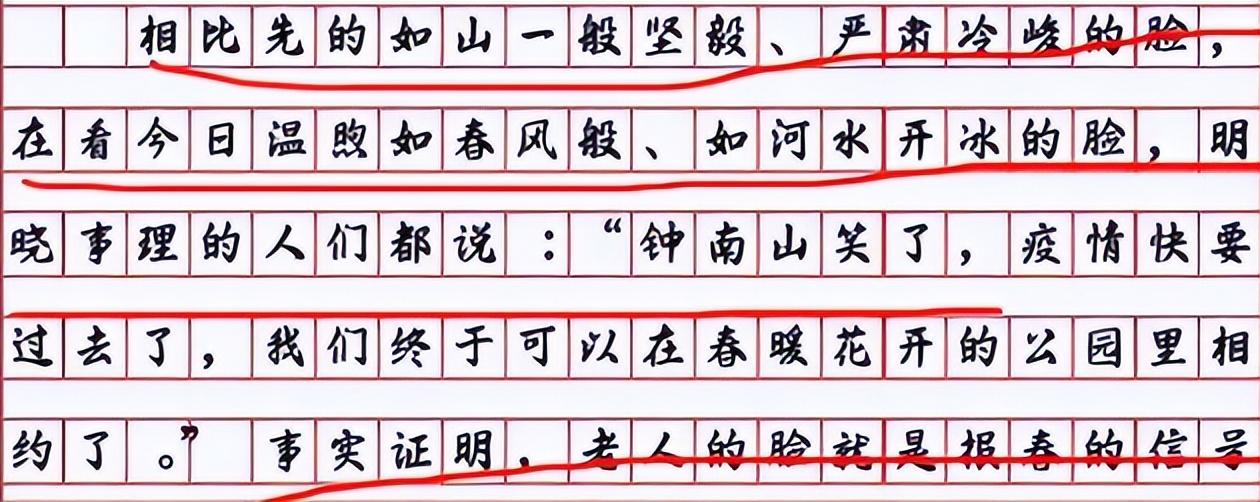 相比先的如山一般坚毅、严肃冷峻的脸，
在看今日温煦如春风般、如河水开冰的脸，明
晓事理的人们都说：“钟南山笑了，疫情快要
过去了，我们终于可以在春暖花开的公园里相
约了。”事实证明，老人的脸就是报春的信号